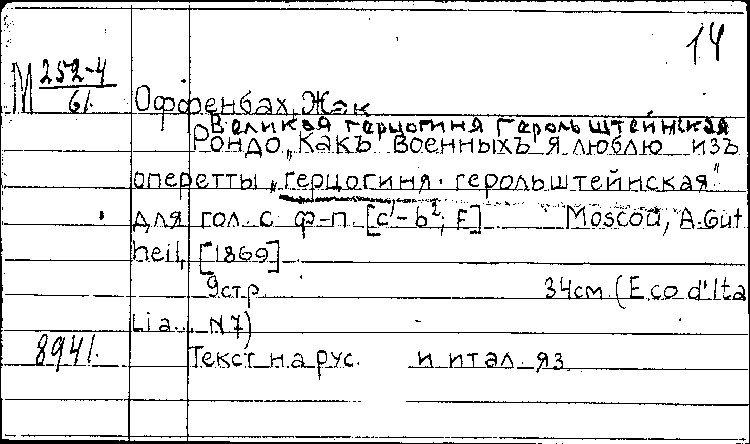 14
М 252-4
61
Оффенбах, Жак
Великая герцогиня Герольштейнская
Рондо „Какъ военныхъ я люблю изъ
оперетты „герцогиня герольштейнская"
для гол. с ф-п. [c¹-b², F] Moscou, A. Gut
heil, [1869]
9стр 34см. (Eco d'Ita
lia... N7)
8941.
Текст на рус. и итал. яз